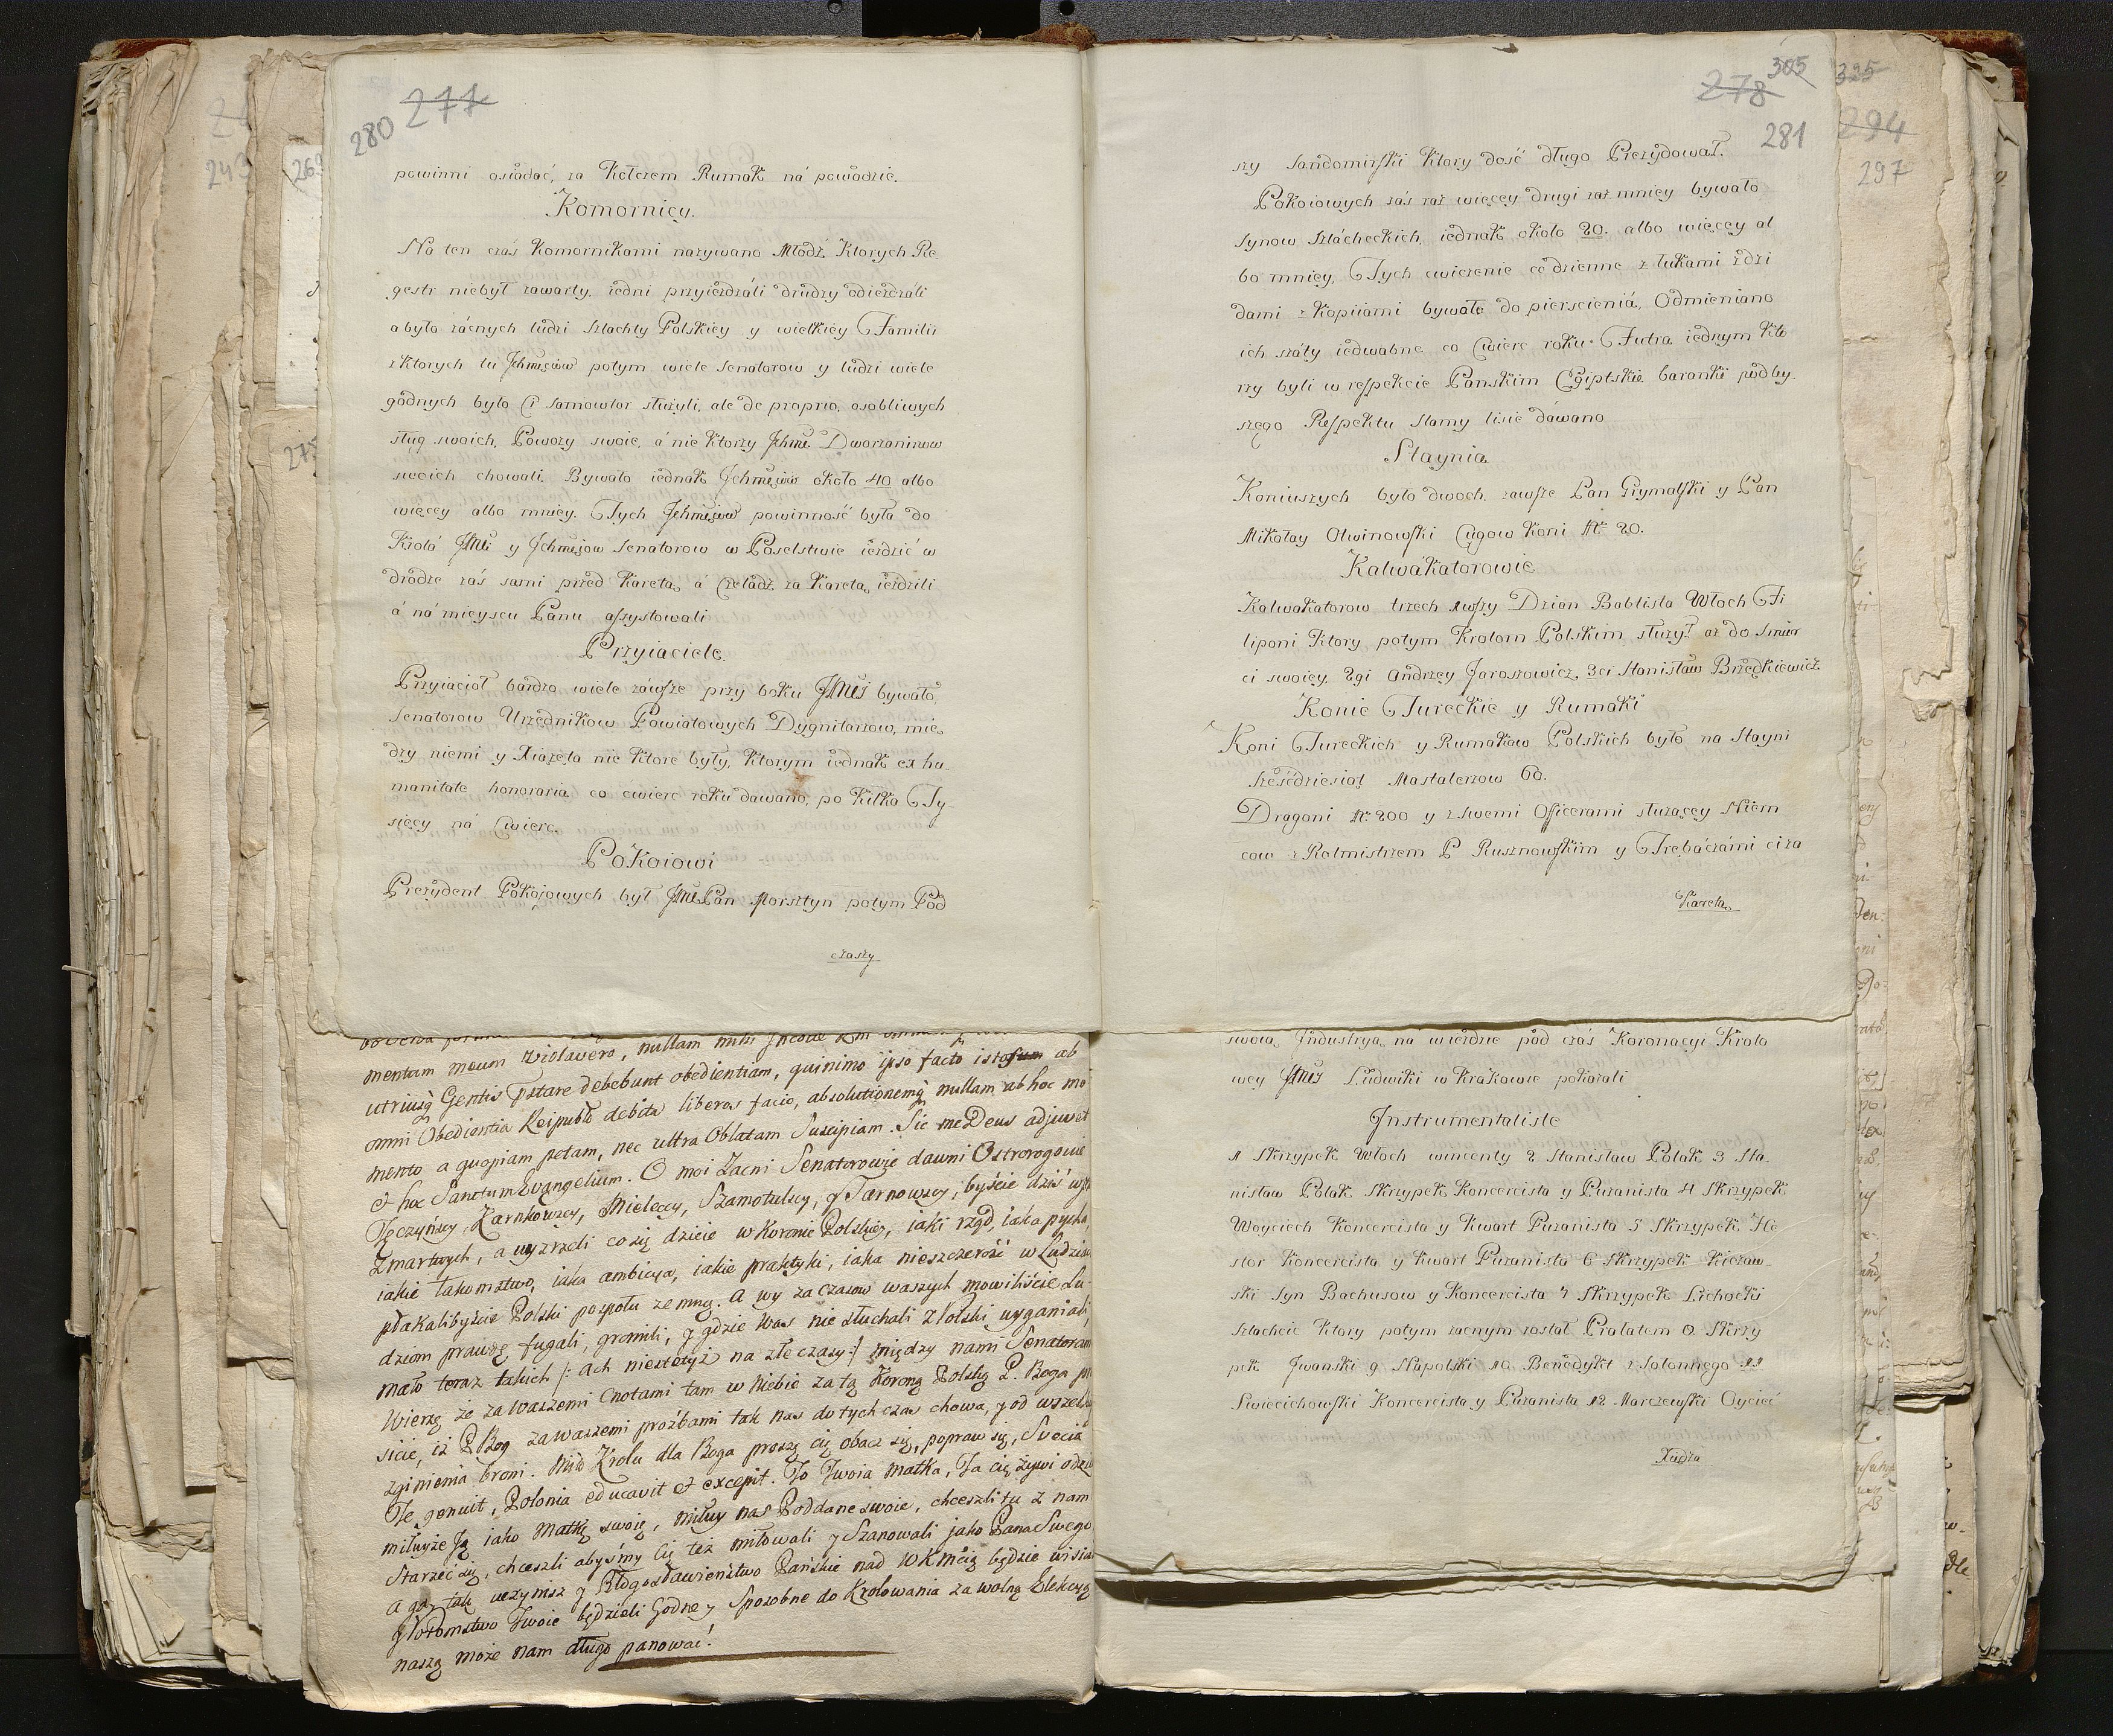 277
280
powinni osiadać, za Kotczem Rumak ná powodzie.
Komornicy.
Na ten czás Komornikami nazywano Młódź, Ktorych Re-
gestr niebył zawarty, iedni przyieżdzáli drudzy odieżdzáli
a było zácnych ludzi Szlachty Polskiey y wielkiey Familii
z Ktorych tu Jchmsciow potym wiele Senatorow y ludzi wiele
godnych było Ci samowtor służyli, ale de proprio, osobliwych
sług swoich, Powozy swoie, á nie Ktorzy Jchmć Dworzaninow
swoich chowali. Bywało iednak Jchmsciow około 40 albo
więcey albo mniey. Tych Jchmsciow powinność była do
Krolá JMci y Jchmsciow Senatorow w Poselstwie ieździć w
drodze záś sami przed Karetą, á Czeladź za Karetą ieździli
á ná mieyscu Panu assystowali
Przyiaciele.
Przyiacioł bardzo wiele záwsze przy boku JMci bywało,
Senatorow Urzędnikow Powiatowych Dygnitarzow, mię-
dzy niemi y Xiążęta nie Ktore były, Ktorym iednak ex hu-
manitate honoraria co cwierc roku dawano, po Kilka Ty-
sięcy ná Cwierc.
Pokoiowi
Prezydent Pokojowych był JMć Pan Morsztyn potym Pod
czaszy
278
305
281
szy Sandomirski Ktory dość długo Prezydował.
Pokoiowych záś raz więcey drugi raz mniey bywało
Synow Szlácheckich, iednak około 20. albo więcey al
bo mniey, Tych cwiczenie codzienne z łukami z dzi
dami z Kopiiami bywało do pierscieniá, Odmieniano
ich száty iedwabne co Cwierc roku. Futra iednym Kto
rzy byli w respekcie Panskim Egiptskie baranki podley-
szego Respektu Slamy lisie dáwano
Staynia
Koniuszych było dwoch, zawsze Pan Grymalski y Pan
Mikołay Otwinowski Cugow Koni Nr 20.
Kalwákatorowie
Kalwakatorow trzech 1wszy Dzian Babtista Włoch Fi
liponi Ktory potym Krolom Polskim służył aż do Smier
ci swoiey, 2gi Andrzey Jaroszowicz, 3ci Stanisław Brzedkiewicz
Konie Tureckie y Rumaki
Koni Tureckich y Rumakow Polskich było na Stayni
Sześćdziesiąt Mastalerzow 60.
Dragoni Nr. 200 y z Swemi Officerami służącey Niem
cow z Rotmistrzem P Rusznowskim y Trębáczámi ci za
Karetą
325
294
297
mentum meum violavero, nullam mihi
utriusq Gentis pstare debebunt obedientiam, quinimo ipso facto istos ab
omni Obedientia Reipubł debita liberos facio, absolutionemq nullam ab hoc mo
mento a quopiam petam, nec ultra Oblatam Suscipiam. Sic me Deus adjuvet
et hoc Sanctum Evangelium. O moi Zacni Senatorowie dawni Ostrorogowie
Tęczyńscy, Zarnkowscy, Mieleccy, Szamotulscy, y Tarnowscy, byście dziś wst
Zmartwych, a uyzrzeli co się dzieie w Koronie Polskiey, iaki rząd, iaka pycha,
iakie łakomstwo, iaka ambicya, iakie praktyki, iaka nieszczerość w Ludziac
płakalibyście Polski pospołu ze mną. A wy za czasow waszych mowiliście Lu-
dziom prawdę, fugali, gromili, y gdzie Was nie słuchali z Polski wyganiali,
mało teraz takich /: ach niestetyż na złe czasy :/ między nami Senatorami
Wierzę że za Waszemi Cnotami tam w Niebie za tą Koroną Polską P. Boga pr
sicie, iż P Bog za waszemi proźbami tak nas do tych czas chowa, y od wszela
zginienia broni. Miły Krolu dla Boga proszę cię obacz się, popraw się, Svecia
Te genuit, Polonia educavit et excepit. To Twoia Matka, Ta cię żywi odzi
miłuyże Ją iako Matkę swoię, miłuy nas Poddane swoie, chceszli tu z nam
Starzeć się, chceszli abyśmy Cię też miłowali y Szanowali jako Pana Swego,
A gdy tak uczynisz y Błogosławieństwo Pańskie nad WKMcią będzie wisia
y Potomstwo Twoie będzieli Godne y Sposobne do Krolowania za wolną Elekcyą
naszą może nam długo panować!
swoią Industryą ná wieżdzie pod czás Koronacyi Krolo
wey JMci Ludwiki w Krakowie pokazali
Instrumentaliste
1 Skrzypek Włoch Wincenty 2 Stanisław Polak 3 Sta-
nisław Polak Skrzypek Koncercista y Puzanista 4 Skrzypek
Woyciech Koncercista y Kwart Puzanista 5 Skrzypek He
stor Koncercista y Kwart Puzanista 6 Skrzypek Kiczaw-
ski Syn Bachusow y Koncercista 7 Skrzypek Lichocki
Szlachcic Ktory potym zacnym został Prałatem 8 Skrzy
pek Jwanski 9 Stapolski 10 Benedykt z Solonnego 11
Swiecichowski Koncercista y Puzanista 12 Marczewski Oyciec
Xiędza